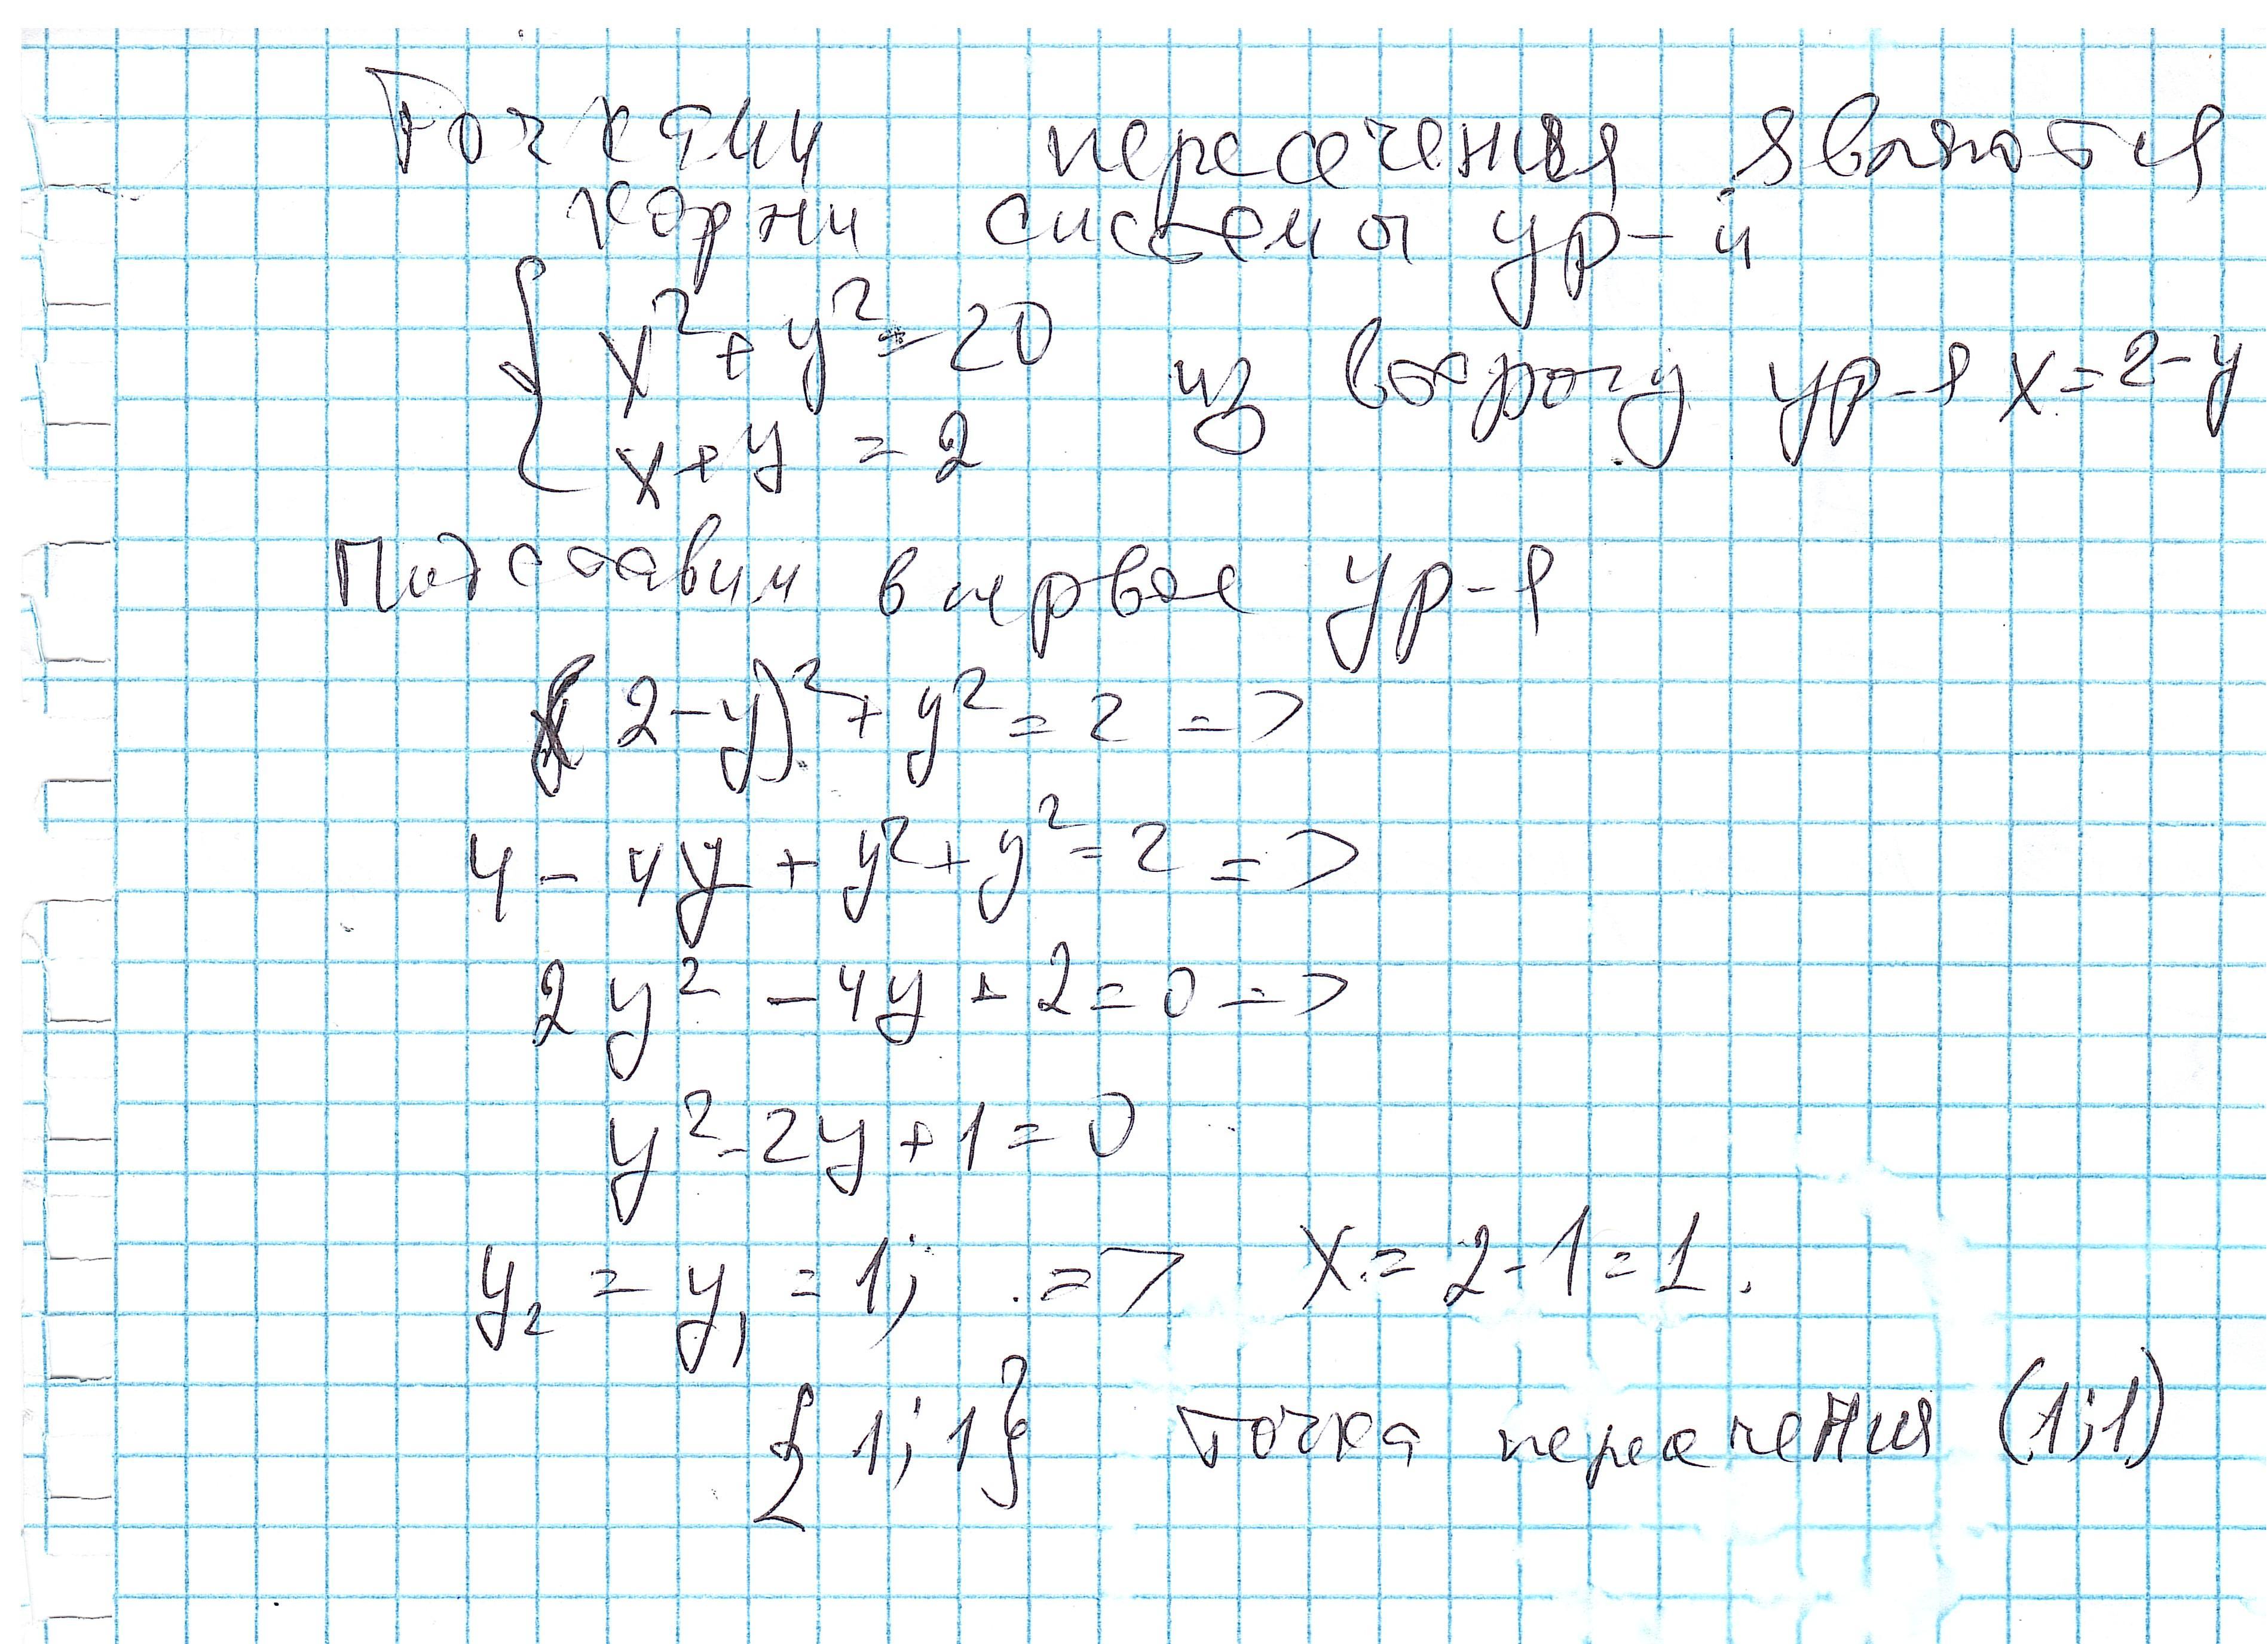 Точками пересечения являются
корни системы ур-й
{ x² + y² = 20
x + y = 2 из второго ур-я x = 2 - y
Подставим в первое ур-я
(2 - y)² + y² = 2 =>
4 - 4y + y² + y² = 2 =>
2y² - 4y + 2 = 0 =>
y² - 2y + 1 = 0
y₂ = y₁ = 1; => x = 2 - 1 = 1.
{1; 1} точка пересечения (1; 1)